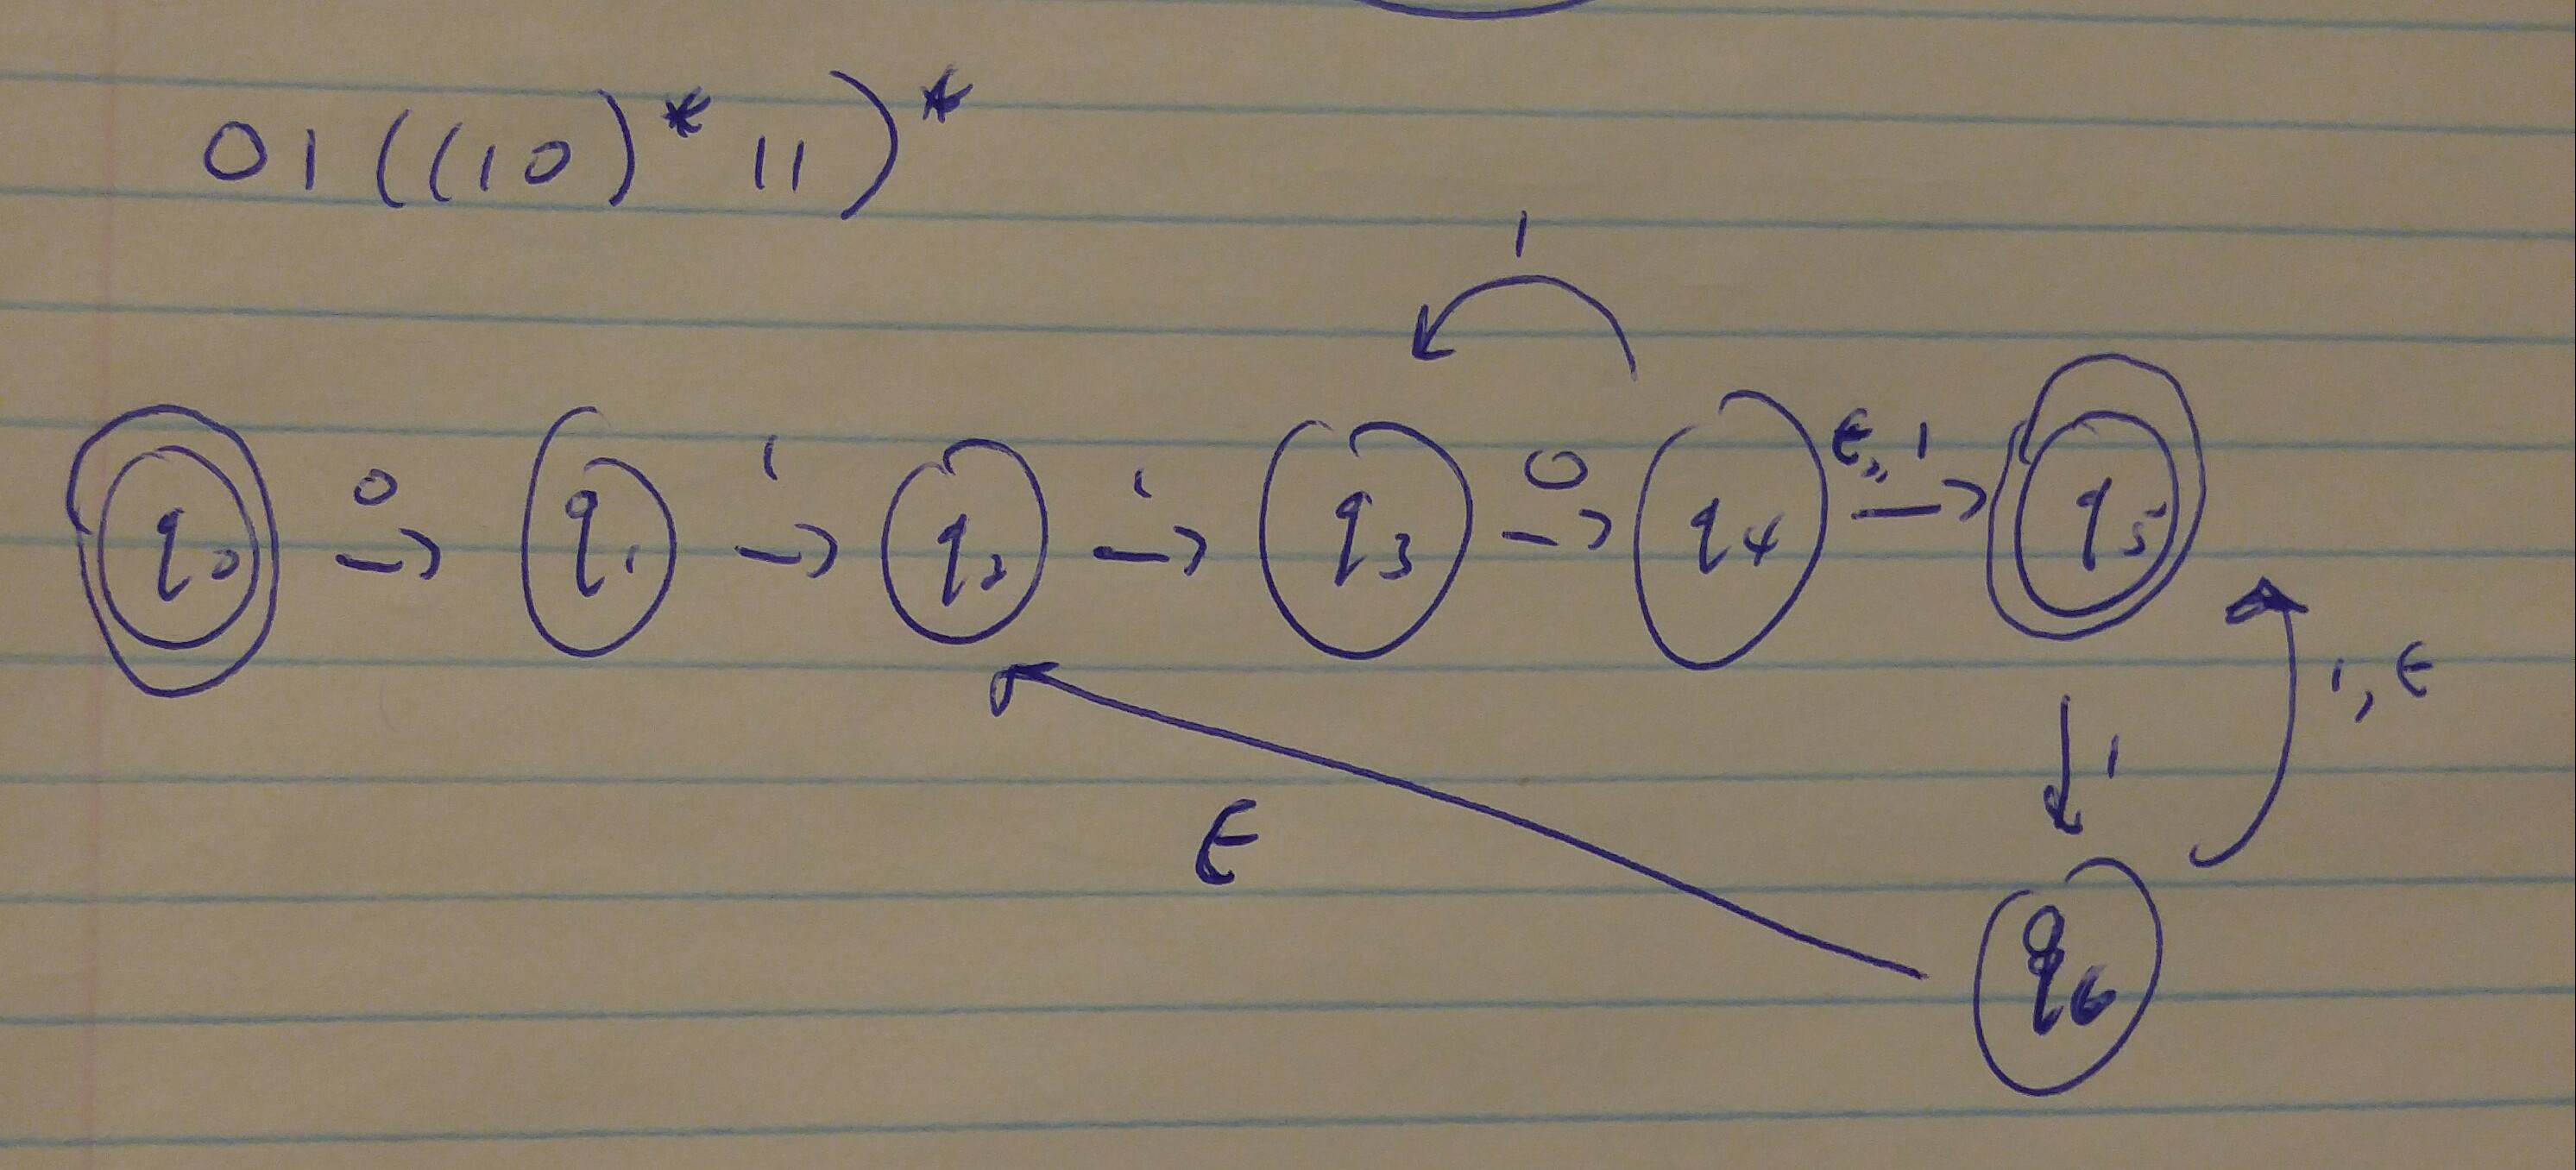 01((10)*11)*
1
q0 0 q1 1 q2 1 q3 0 q4 ε, 1 q5
1, ε
1
ε
q6